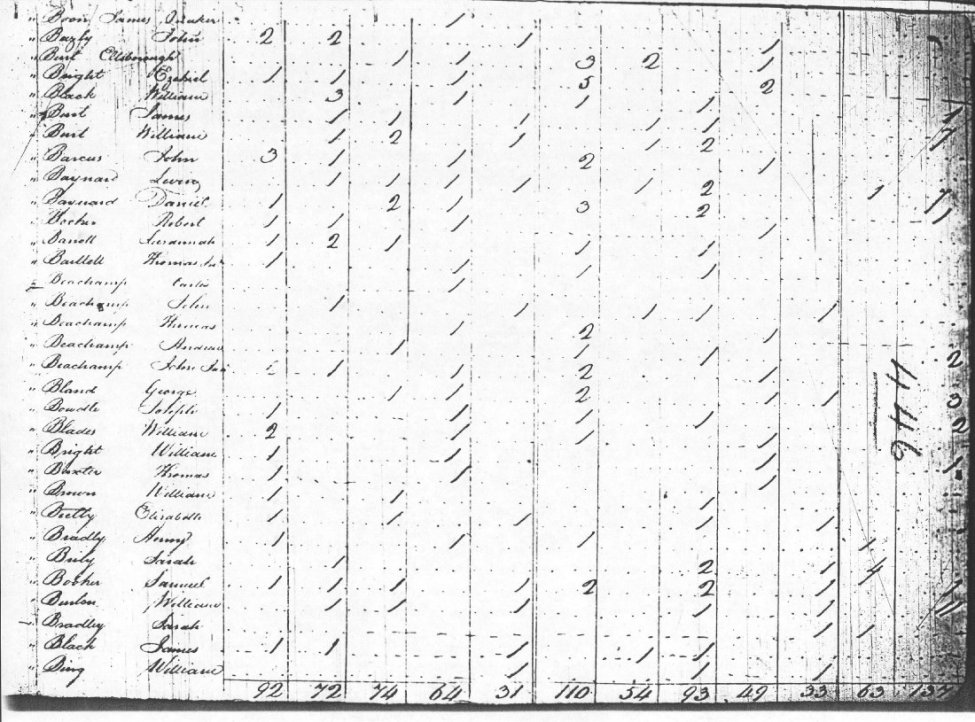 " Boon, James Quaker 1
" Bagly John 2 2 1
" Burt 1 1 3 2 1
" Bright Ezekiel 1 1 1 5 1
" Black William 3 1 1 2
" Burt James 1 1 1 1 1
" Burt William 1 2 1 1 2
" Barcus John 3 1 1 2 1
" Baynard Levin 1 1 1 1 1 2 1
" Baynard Daniel 1 2 1 3 2
" Booker Robert 1 1 1 1
" Barrell Susannah 1 2 1 1 1
" Bartlett Thomas 1 1 1 1
" Beachamp 1
" Beachamp John 1 1 1 1 1
" Beachamp Thomas 1 2 1
" Beachamp Andrew 1 1 1
" Beachamp John 1 1 2 1
" Bland George 1 1 2 1 1
" Bowdle Joseph 1 1 1 1
" Blades William 2 1 1 1
" Bright William 1 1 1
" Baxter Thomas 1 1 1
" Brown William 1 1 1
" Betty Elizabeth 1 1 1 1 1
" Bradly Henry 1 1 1 1
" Sarah 1 2 1 4
" Booker Samuel 1 1 1 1 2 2 1 1
" William 1 1 1 1 1
Bradley Sarah 1 1
" Black James 1 1 1 1 1
" Bing William 1 1 1
446
92 72 74 64 31 110 54 93 49 33 63 137